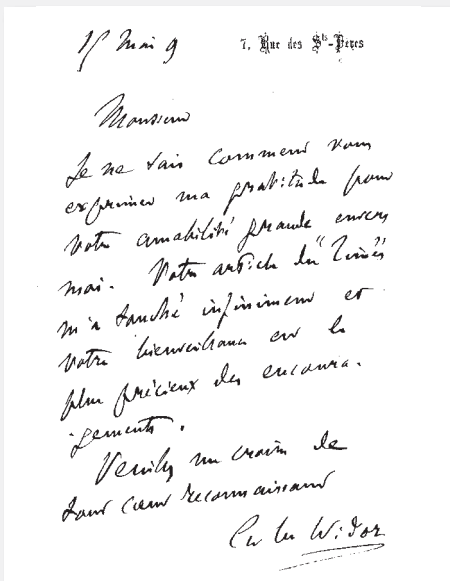 15 Mai 9
7, Rue des Sts-Pères
Monsieur
Je ne sais comment vous
exprimer ma gratitude pour
votre amabilité grande envers
moi. Votre article du "Times"
m'a touché infiniment et
votre bienveillance est le
plus précieux des encoura-
gements.
Veuillez me croire de
tout cœur reconnaissant
Ch M Widor